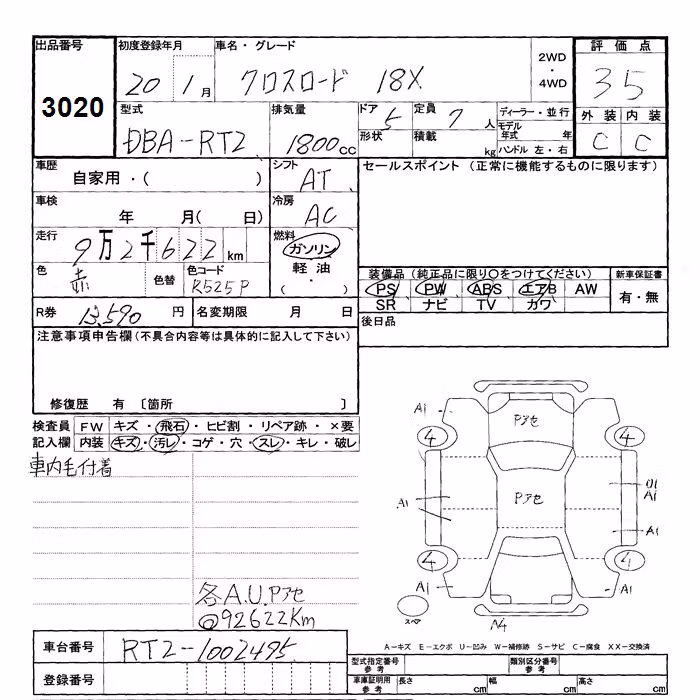 出品番号 初度登録年月 車名・グレード 2WD・4WD 評価点
3020 20 1月 クロスロード 18X 35
型式 排気量 ドア 5 定員 7人 ディーラー・並行 外装 内装
DBA-RT2 1800cc 形状 積載 kg モデル年式 年 C C
ハンドル 左・右
車歴 シフト セールスポイント (正常に機能するものに限ります)
自家用・( ) AT
車検 冷房
年 月( 日) AC
走行 燃料
9万2千622km ガソリン
色 色替 色コード 軽油 装備品 (純正品に限り○をつけてください) 新車保証書
赤 R525P ( ・ ) PS PW ABS エアB AW 有・無
SR ナビ TV カワ
R券 13,590円 名変期限 月 日 後日品
注意事項申告欄 (不具合内容等は具体的に記入して下さい)
修復歴 有 〔箇所 〕
検査員 FW キズ・飛石・ヒビ割・リペア跡・×要
記入欄 内装 キズ・汚レ・コゲ・穴・スレ・キレ・破レ
車内毛付着
A1 Pアセ
4 4
Pアセ
A1 U1
A1
A1
4 4
A1 A1
スペア A4
各A.U.Pアセ
@92622Km
A-キズ E-エクボ U-凹み W-補修跡 S-サビ C-腐食 XX-交換済
車台番号 RT2-1002495 型式指定番号 参考 類別区分番号 参考
登録番号 車庫証明用 参考 長さ cm 幅 cm 高さ cm